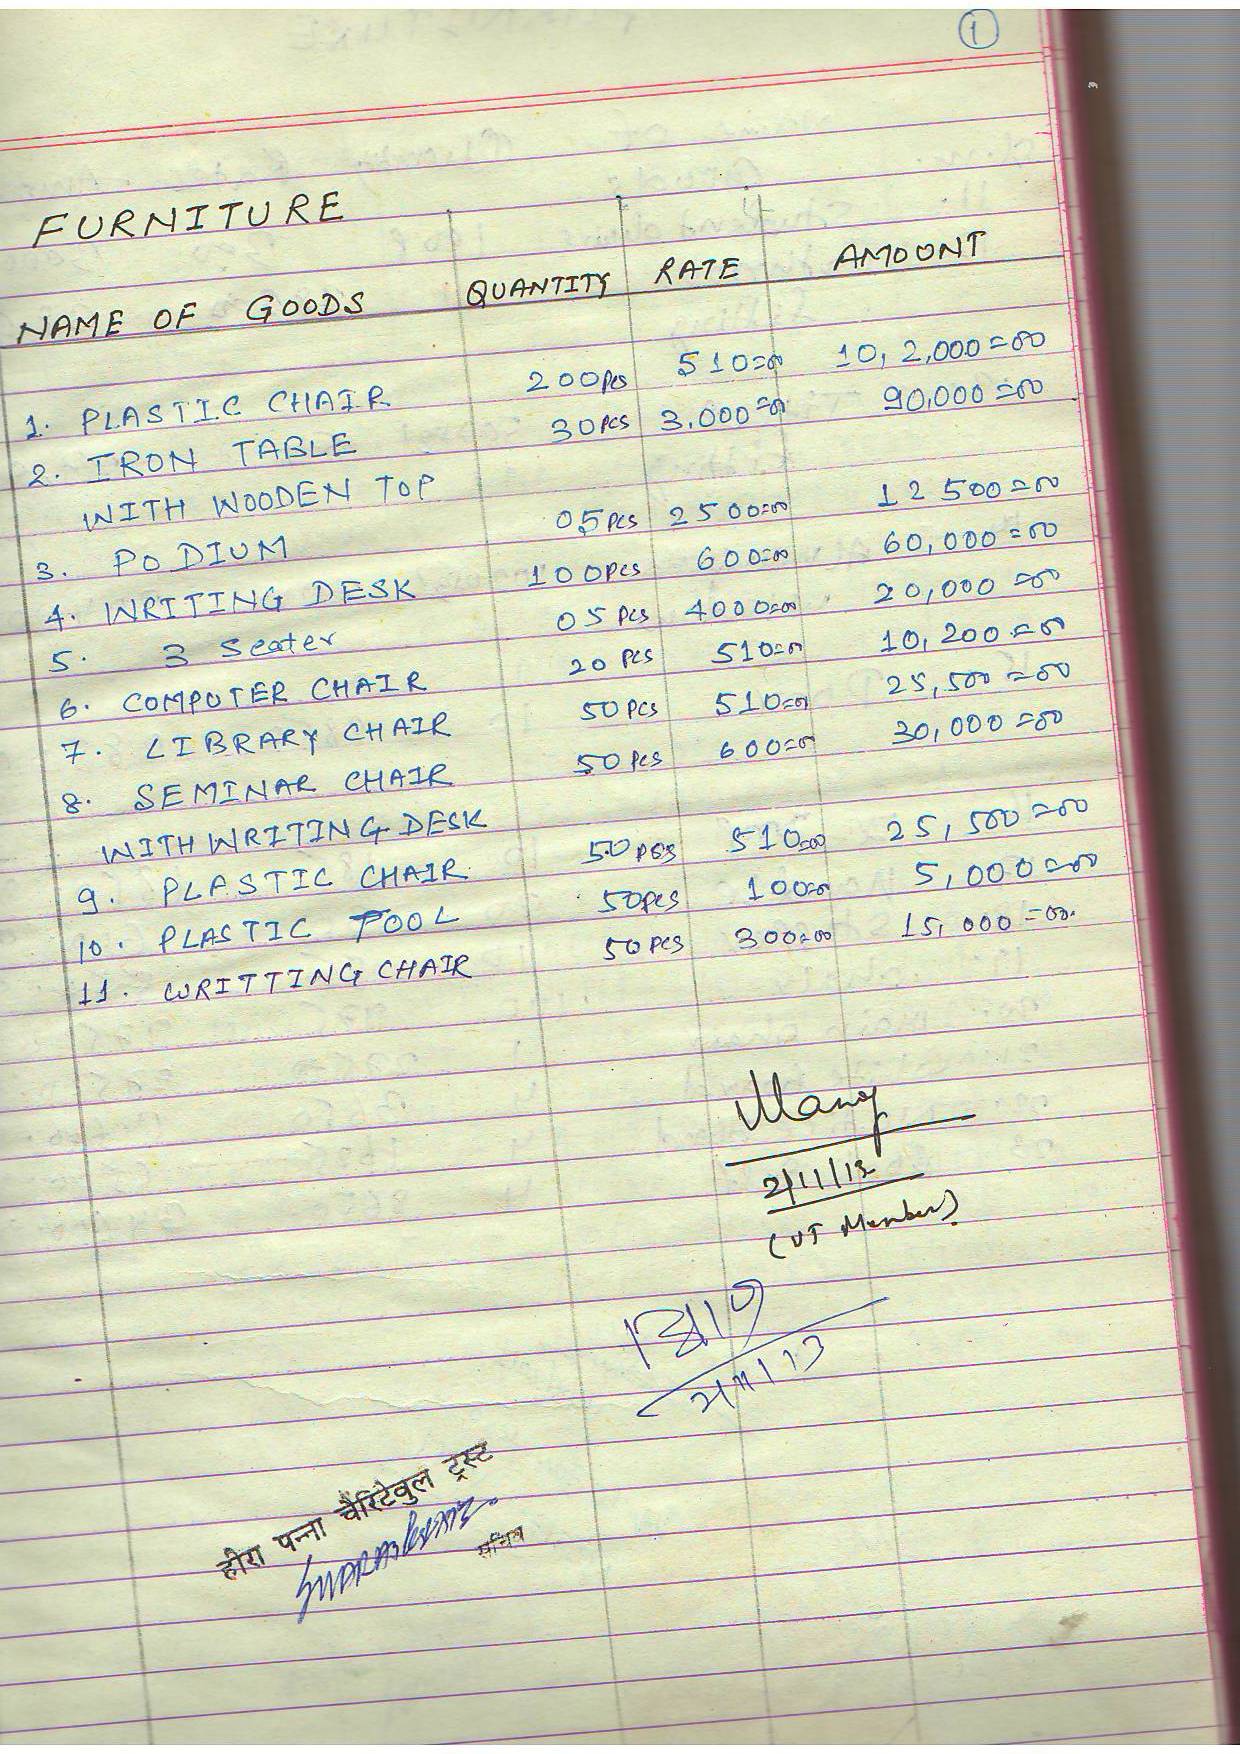 1
FURNITURE
NAME OF GOODS QUANTITY RATE AMOUNT
1. PLASTIC CHAIR 200 Pcs 510=00 10,2,000=00
2. IRON TABLE 30 PCS 3,000=00 90,000=00
WITH WOODEN TOP
3. PODIUM 05 PCS 2500=00 12500=00
4. WRITING DESK 100 PCS 600=00 60,000=00
5. 3 Seater 05 PCS 4000=00 20,000=00
6. COMPUTER CHAIR 20 PCS 510=00 10,200=00
7. LIBRARY CHAIR 50 PCS 510=00 25,500=00
8. SEMINAR CHAIR 50 PCS 600=00 30,000=00
WITH WRITING DESK
9. PLASTIC CHAIR 50 PCS 510=00 25,500=00
10. PLASTIC TOOL 50 PCS 100=00 5,000=00
11. WRITTING CHAIR 50 PCS 300=00 15,000=00.
2/11/13
(VT Member)
2/11/13
हीरा पन्ना चैरिटेवुल ट्रस्ट
सचिव